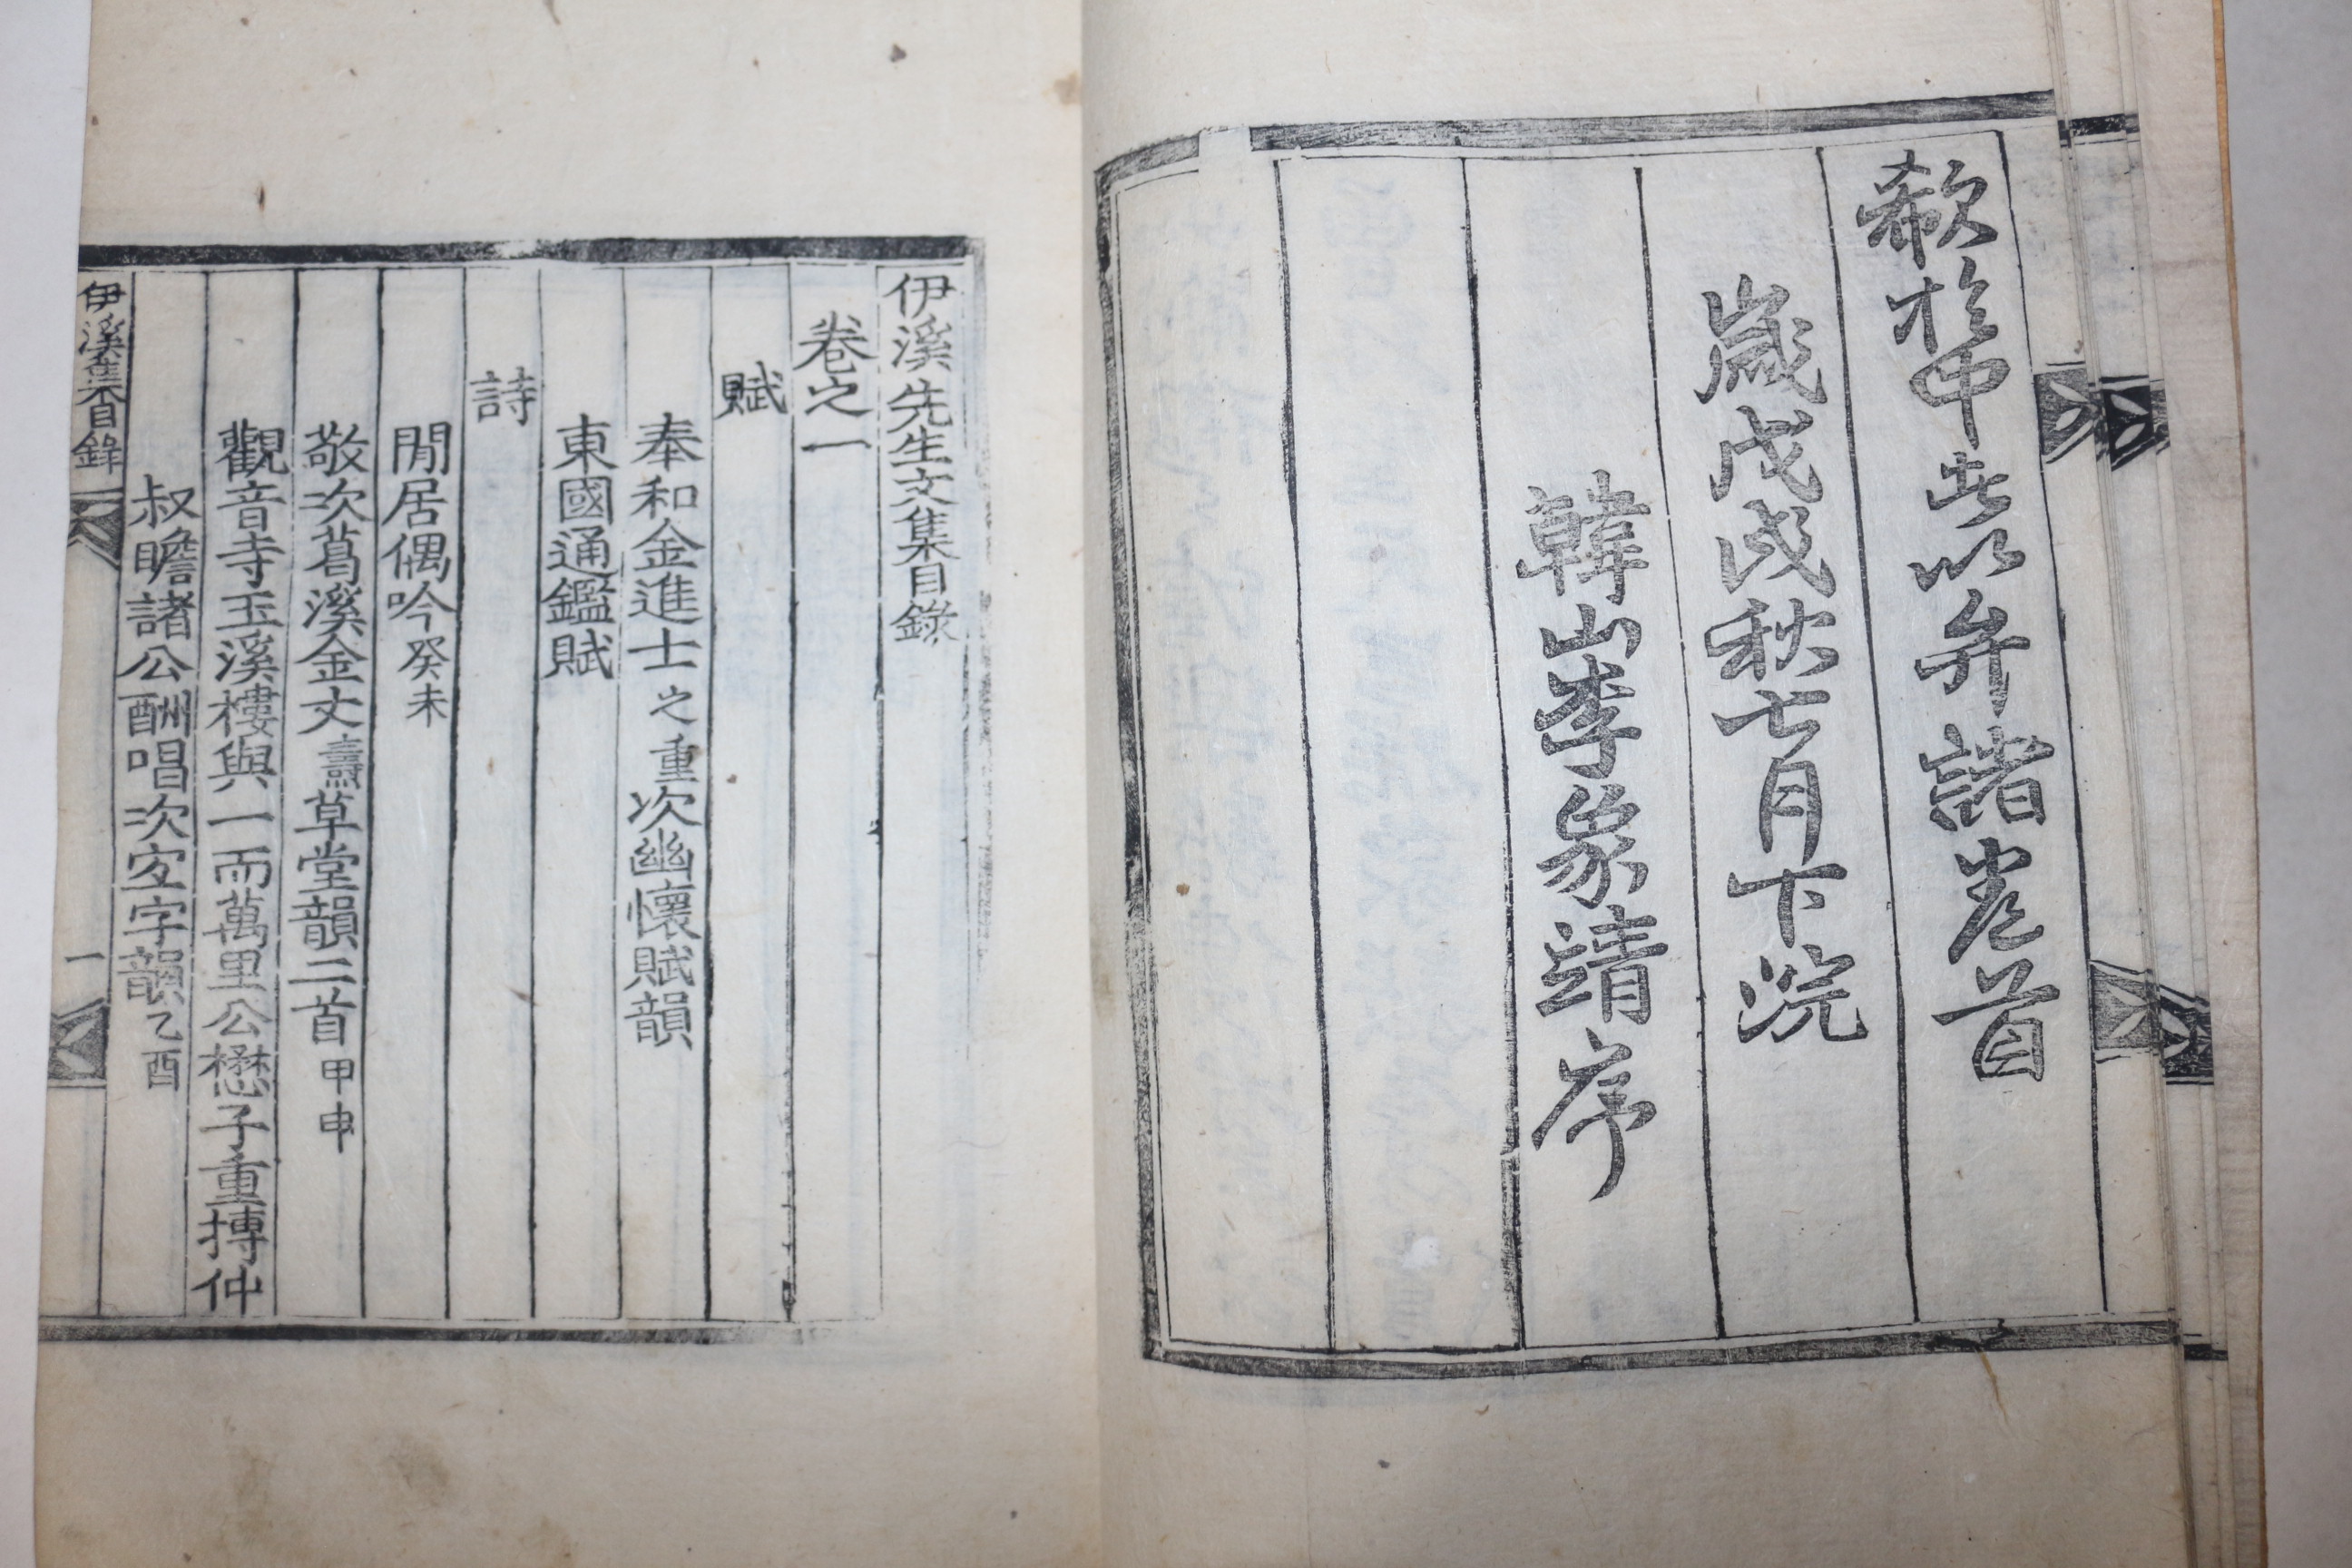 欷於中書以弁諸卷首
歲戊戌秋七月下浣
韓山李象靖序
伊溪先生文集目錄
卷之一
賦
奉和金進士之重次幽懷賦韻
東國通鑑賦
詩
閒居偶吟癸未
敬次葛溪金丈燾草堂韻二首甲申
觀音寺玉溪樓與一而萬里公懋子重搏仲
叔瞻諸公酬唱次宜字韻乙酉
伊溪集目錄 一